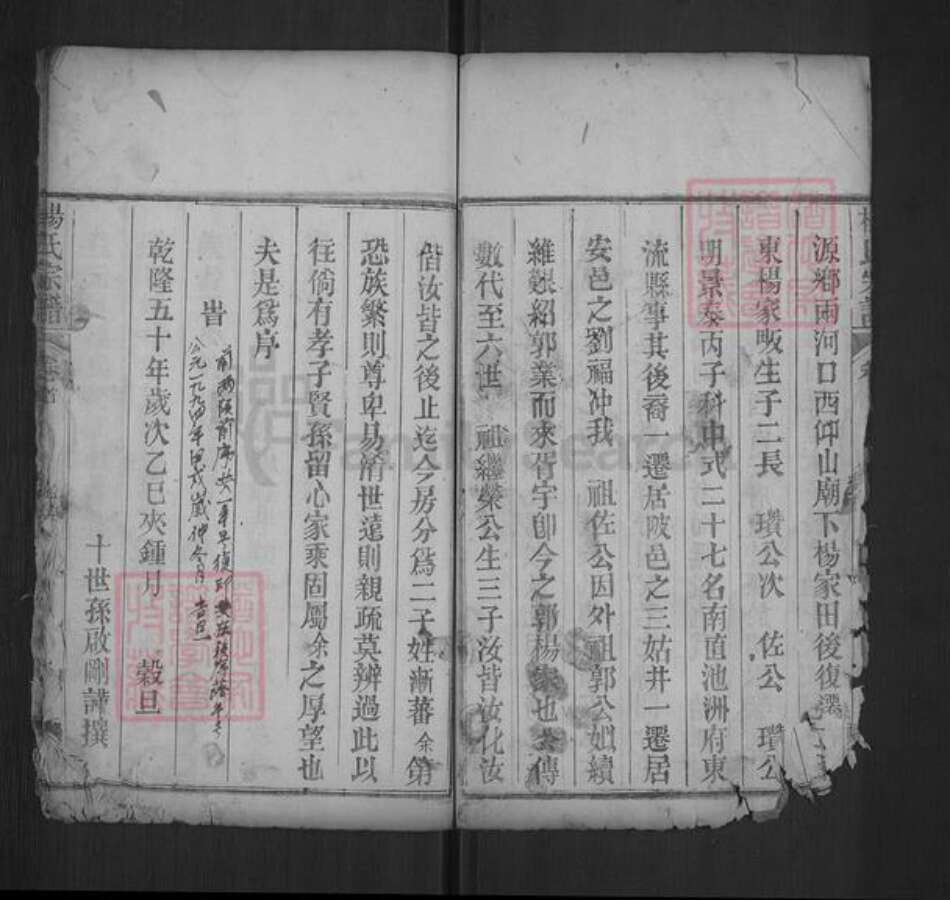 楊氏宗譜
源鄉兩河口西仰山廟下楊家田後復遷
東楊家畈生子二長 瓚公次 佐公 瓚公
明景泰丙子科中式二十七名南直池洲府東
流縣事其後裔一遷居陂邑之三姑井一遷居
安邑之劉福冲我 祖佐公因外祖郭公姻續
維艱紹郭業而來胥宇即今之郭楊家也公傳
數代至六世 祖繼榮公生三子汝皆汝化汝
偕汝皆之後止迄今房分爲二子姓漸蕃余第
恐族繁則尊卑易淆世遠則親疏莫辨過此以
往倘有孝子賢孫留心家乘固屬余之厚望也
夫是爲序
旹
公元一九九四年甲戌歲仲冬月 吉旦
乾隆五十年歲次乙巳夾鍾月 穀旦
十世孫啟剛謹撰
楊氏宗譜